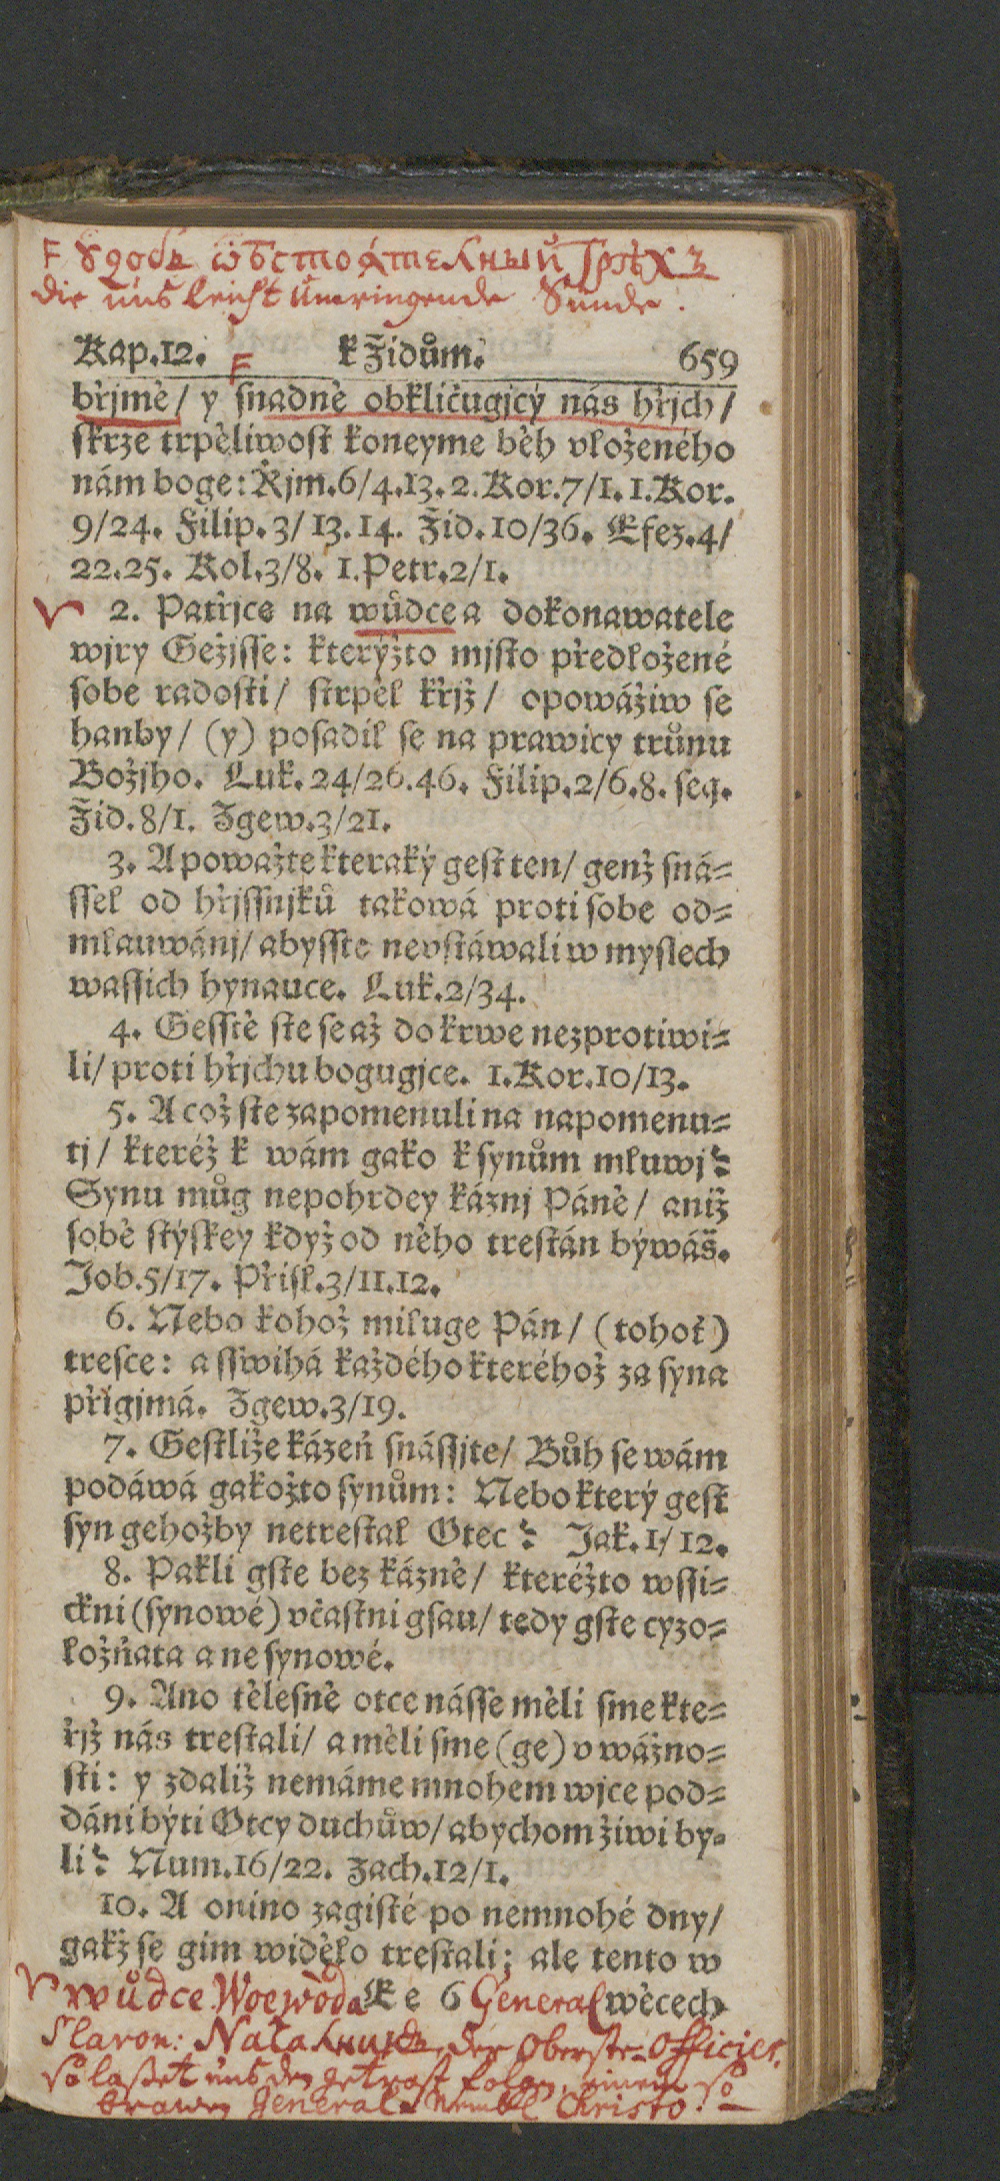 F ꙋдобь ѡбстоѧтелный грѣхъ
die uns leicht umringende Sünde.
Kap.12. F k Židům. 659
břjmě/ y snadně obkličugjcý nás hřjch/
skrze trpěliwost koneyme běh vloženého
nám boge: Řjm.6/4.13. 2.Kor.7/1. 1.Kor.
9/24. Filip.3/13.14. Žid.10/36. Efez.4/
22.25. Kol.3/8. 1.Petr.2/1.
2. Patřjce na wůdce a dokonawatele
wjry Gežjsse: kterýžto mjsto předložené
sobe radosti/ strpěl křjž/ opowážiw se
hanby/ (y) posadil se na prawicy trůnu
Božjho. Luk.24/26.46. Filip.2/6.8. seq.
Žid.8/1. Zgew.3/21.
3. A powažte kteraký gest ten/ genž sná=
ssel od hřjssnjků takowá proti sobe od=
mlauwánj/ abysste nevstáwali w myslech
wassich hynauce. Luk.2/34.
4. Gesstě ste se až do krwe nezprotiwi=
li/ proti hřjchu bogugjce. 1.Kor.10/13.
5. A což ste zapomenuli na napomenu=
tj/ kteréž k wám gako k synům mluwj?
Synu můg nepohrdey káznj Páně/ aniž
sobě stýskey když od něho trestán býwáš.
Job.5/17. Přisl.3/11.12.
6. Nebo kohož miluge Pán/ (tohoť)
tresce: a sswihá každého kteréhož za syna
přigjmá. Zgew.3/19.
7. Gestliže kázeň snássjte/ Bůh se wám
podáwá gakožto synům: Nebo který gest
syn gehožby netrestal Otec? Jak.1/12.
8. Pakli gste bez kázně/ kteréžto wssi=
ckni (synowé) včastni gsau/ tedy gste cyzo=
ložňata a ne synowé.
9. Ano tělesně otce násse měli sme kte=
řjž nás trestali/ a měli sme (ge) v wážno=
sti: y zdaliž nemáme mnohem wjce pod=
dáni býti Otcy duchůw/ abychom žiwi by=
li? Num.16/22. Zach.12/1.
10. A onino zagisté po nemnohé dny/
gakž se gim widělo trestali; ale tento w
wůdce Woewoda Ee 6 General wěcech
Slavon: der Oberste Officier.
so laßet uns getrost folgen, einem so
braven General Christo.